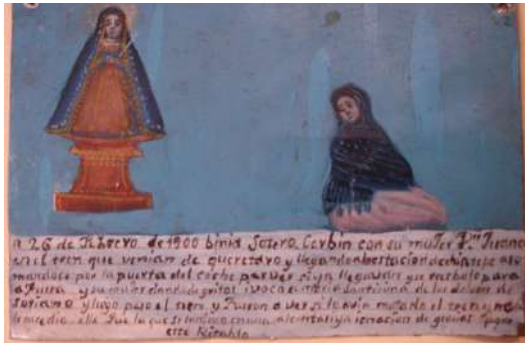 a 26 de Febrero de 1900 binia Sotero Cerbin con su muJer F.ca
en el tren que venian de queretaro y llegando a la estacion de aso
mandose por la puerta del coche para ver si ya llegavan y se para
a fuera y su muJer dando de gritos ivoco a maria santicima de los dolores de
soriano y luego paso el tren y Fueron a ver si lo avia matado el tren y no le
ella Fue la que si y en acion de gracias
este Retablo